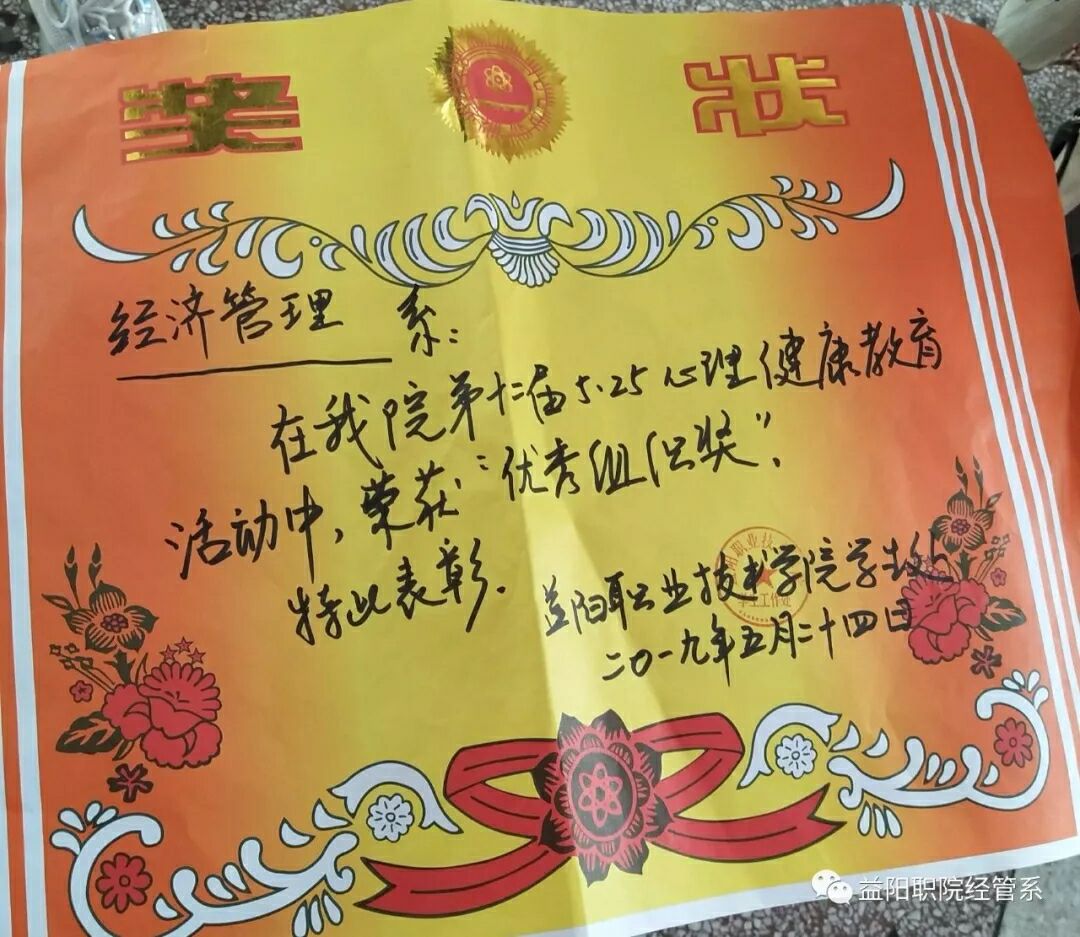 奖 状
经济管理 系:
在我院第十二届5.25心理健康教育
活动中,荣获“优秀组织奖”.
特此表彰.
益阳职业技术学院学工处
二〇一九年五月二十四日
学生工作处
益阳职院经管系